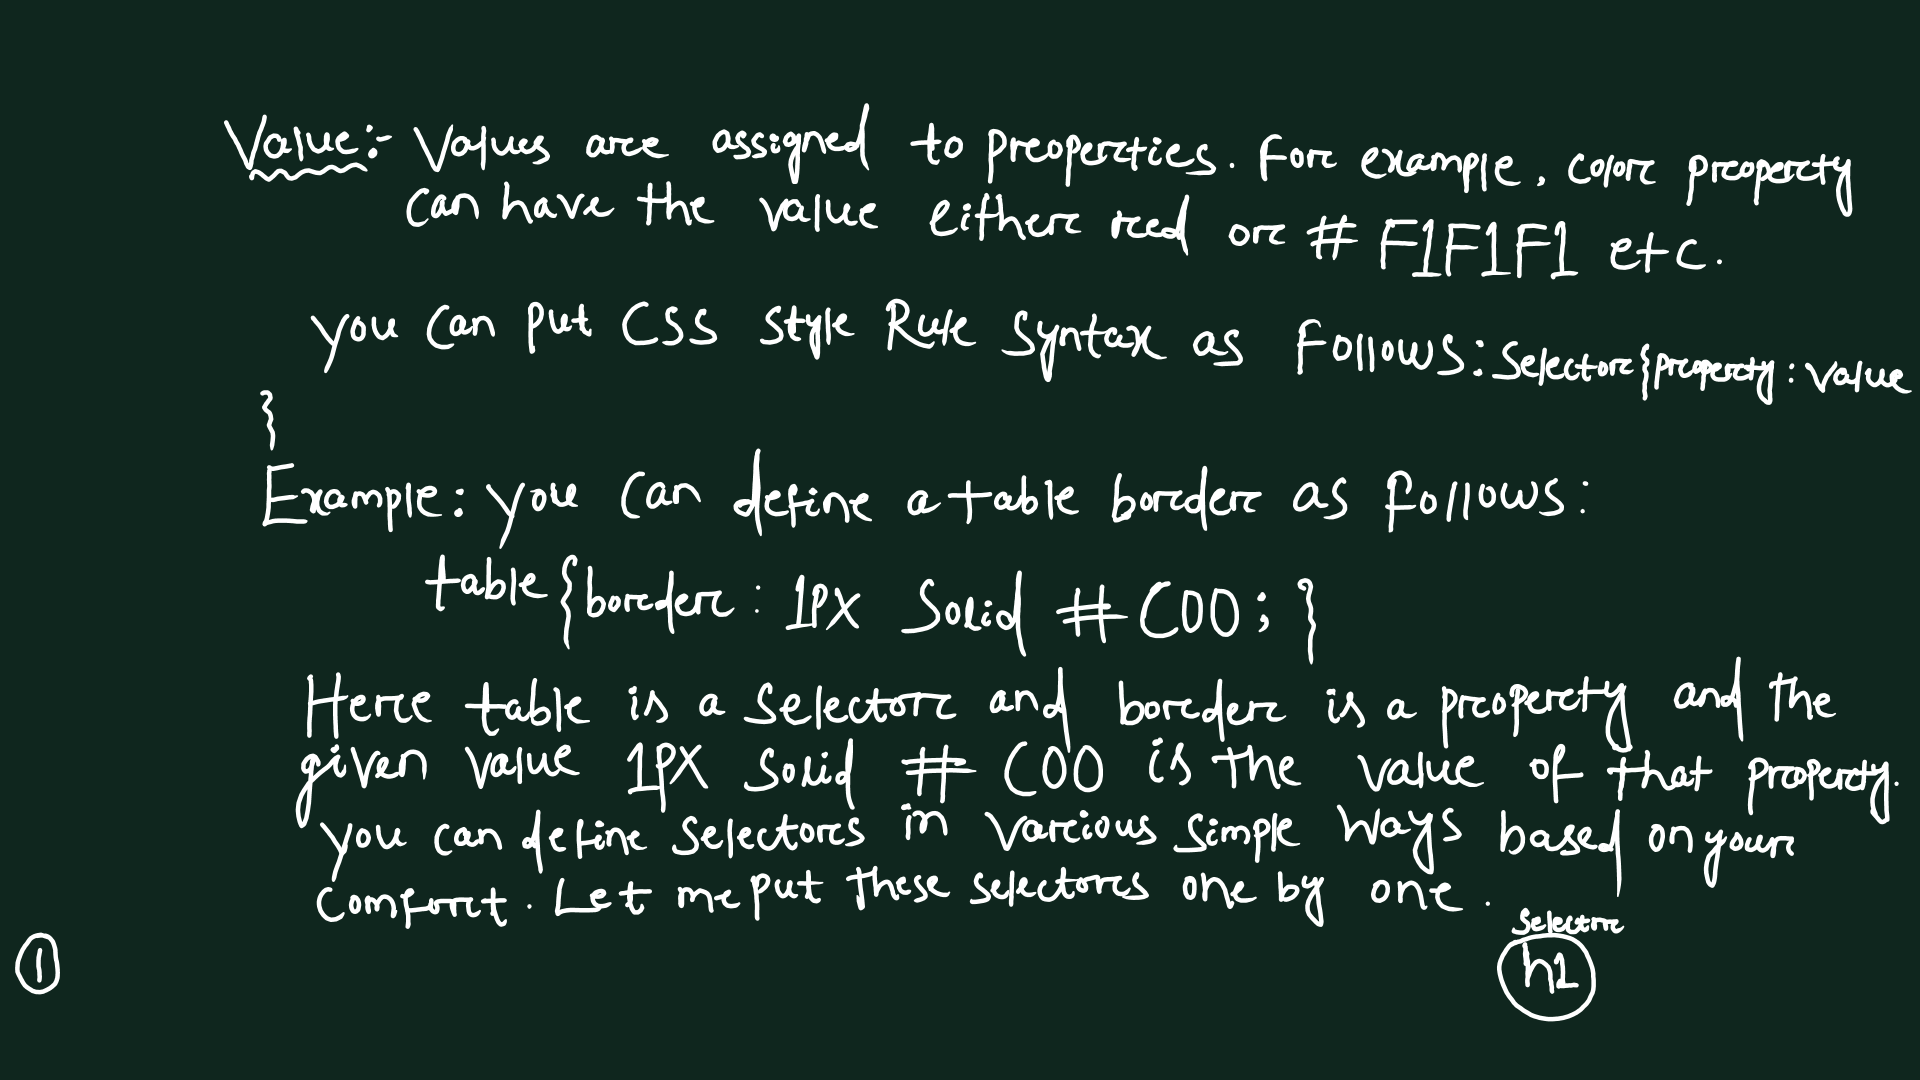 Value:- Values are assigned to properties. For example, color property
can have the value either red or # F1F1F1 etc.
you can put CSS Style Rule Syntax as Follows: Selector{property : Value
}
Example: you can define a table border as follows:
table {border : 1PX Solid #C00; }
Here table is a selector and border is a property and the
given value 1PX Solid #C00 is the value of that property.
you can define selectors in various simple ways based on your
comfort. Let me put these selectors one by one.
Selector
1
h1